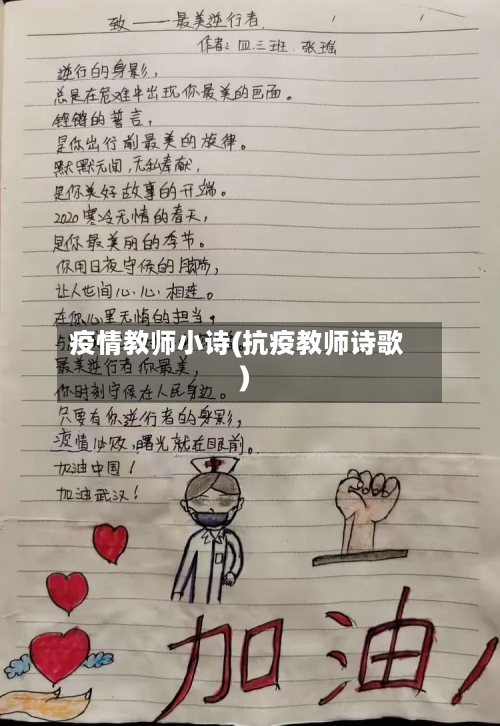 致——最美逆行者
作者：四.三班 张瑶
逆行的身影，
总是在危难中出现你最美的画面。
铿锵的誓言，
是你出行前最美的旋律。
默默无闻，无私奉献，
是你美好故事的开端。
2020寒冷无情的春天，
是你最美丽的季节。
你用日夜守候的脚步，
让人世间心心相连。
在你心里无悔的担当。
与
疫情教师小诗(抗疫教师诗歌
)
最美逆行者你最美，
你时刻守候在人民身边。
只要有你逆行者的身影，
疫情必败，曙光就在眼前。
加油中国！
加油武汉！
加油！